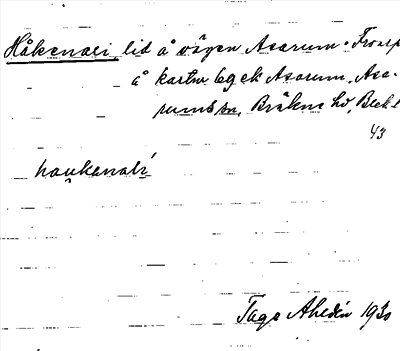 Håkenasi, lid å vägen Asarum - Froarp
å kartbl 6 gek Asarum, Asa-
rums sn, Bräkne hd, Blek l
43
haukenasi
Tage Ahldén 1930